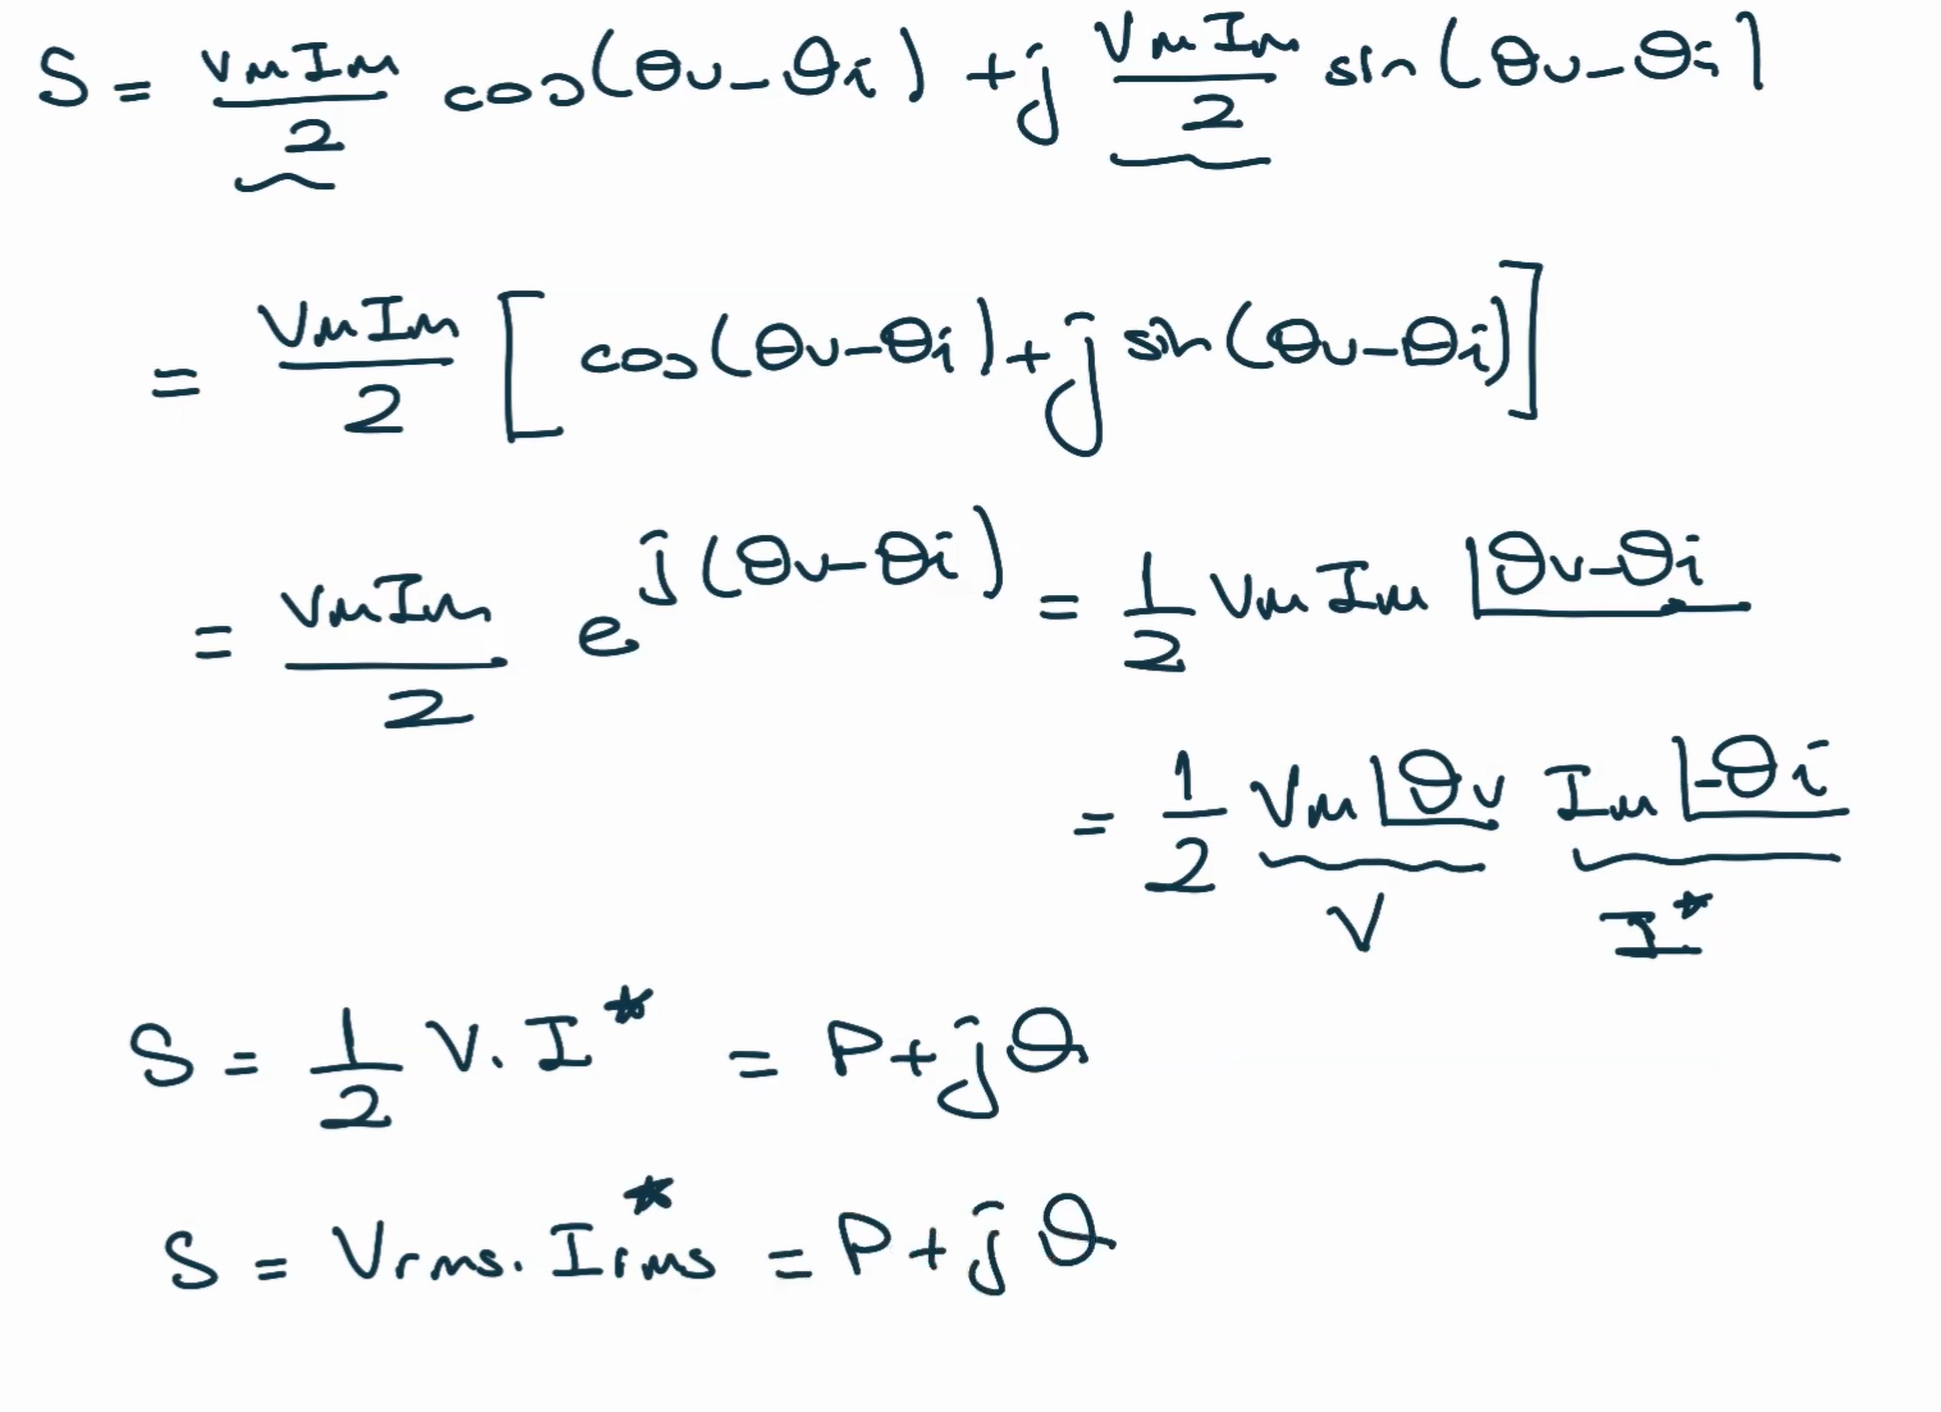 S = VmIm/2 cos(θv-θi) + j VmIm/2 sin(θv-θi)
= VmIm/2 [cos(θv-θi)+j sin(θv-θi)]
= VmIm/2 e^j(θv-θi) = 1/2 Vm Im ∠θv-θi
= 1/2 Vm ∠θv Im ∠-θi
V I*
S = 1/2 V. I* = P+jQ
S = Vrms. Irms* = P+jQ